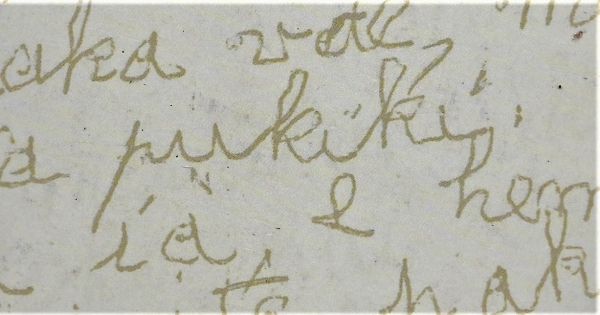 aka vae,
a pukiki;
ia, e hem
te hak